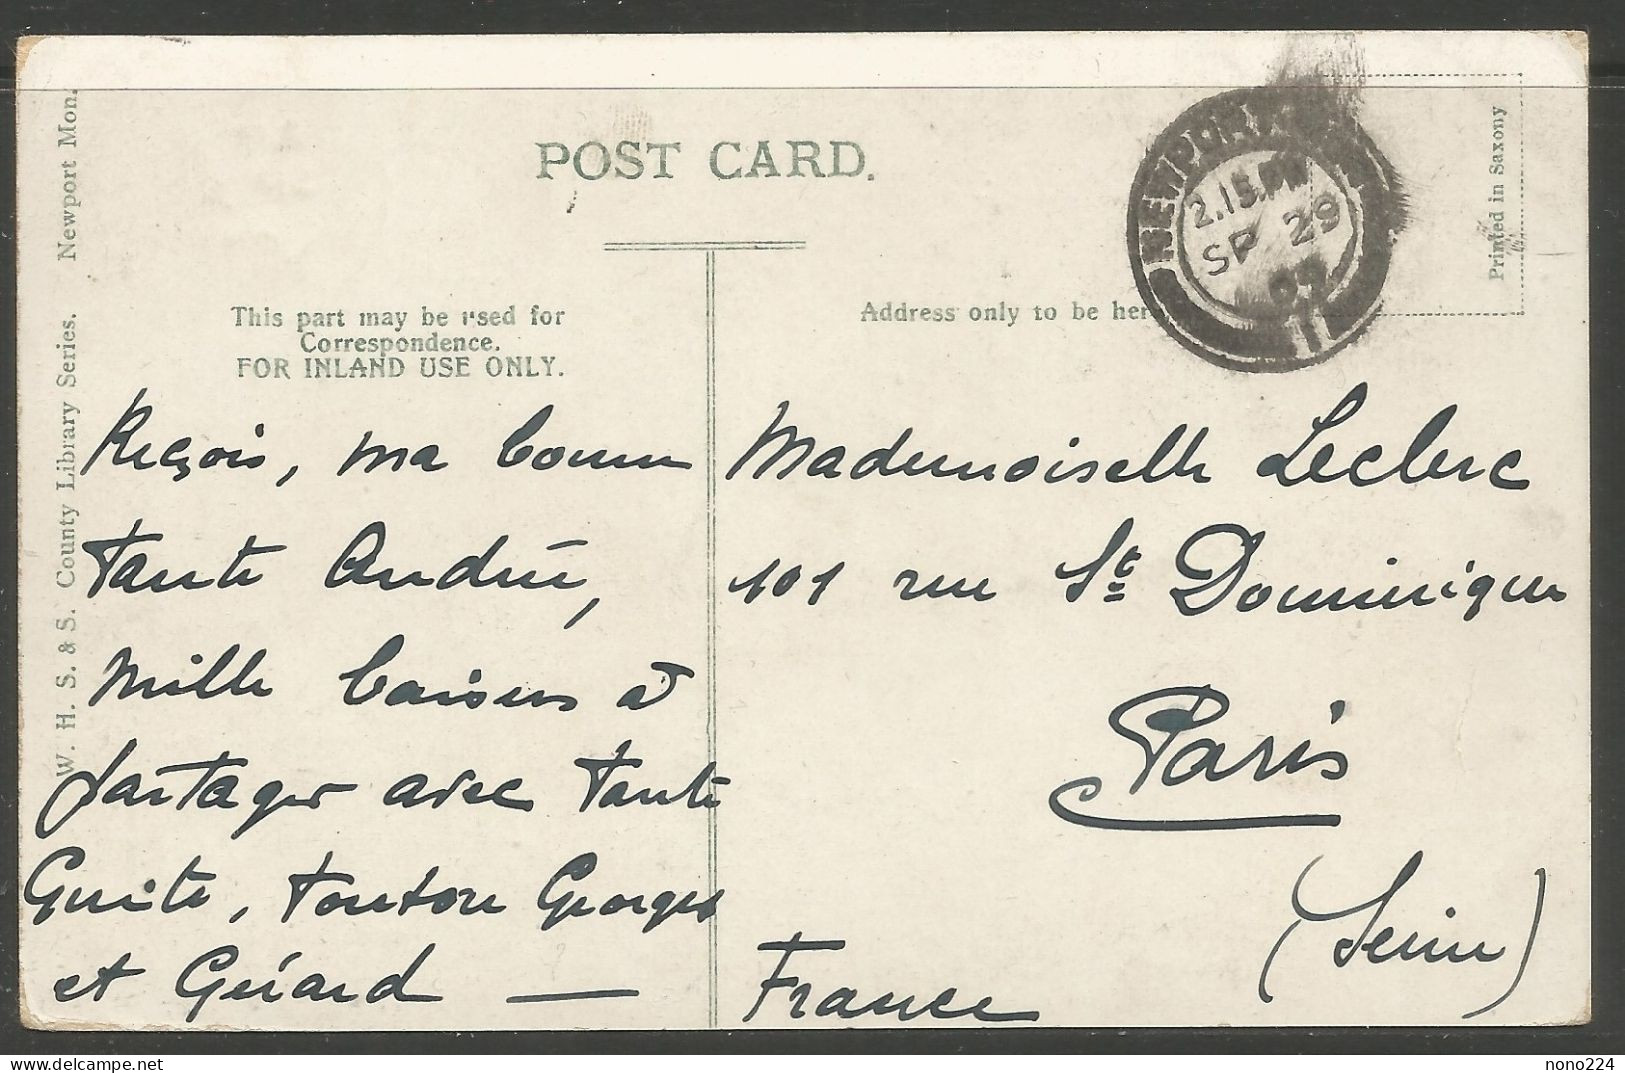 POST CARD.
W. H. S. & S. County Library Series. Newport Mon.
This part may be used for
Correspondence.
FOR INLAND USE ONLY.
Address only to be her
Printed in Saxony
NEWPORT
2.15.PM
SP 29
09
11
Reçois, ma bonne
tante Andrée,
mille baisers à
partager avec tante
Guite, tonton Georges
et Gérard —
Mademoiselle Leclerc
101 rue St Dominique
Paris
(Seine)
France
delcampe.net
nono224